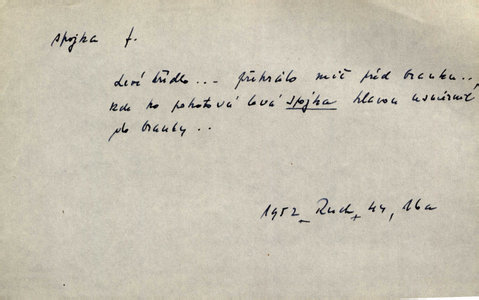 spojka f.
levé křídlo... přihrálo míč před branku..,
kde ho pohotová levá spojka hlavou usměrnila
do branky..
1952_Ruch_44, 16a